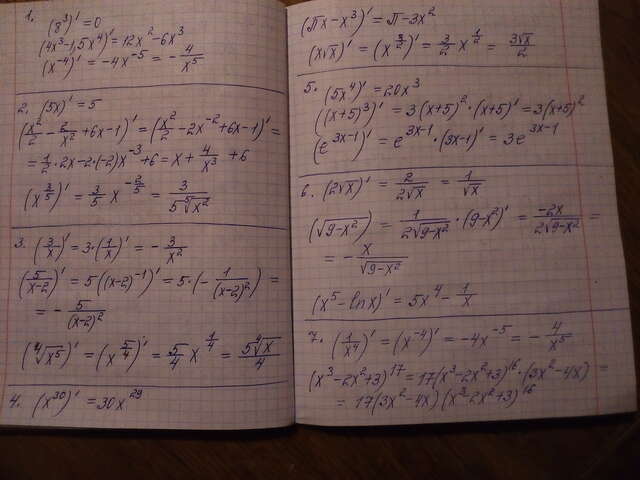 1. (8³)' = 0
(4x³-1,5x⁴)' = 12x² - 6x³
(x⁻⁴)' = -4x⁻⁵ = -4/x⁵
2. (5x)' = 5
(x²/2 - 2/x² + 6x - 1)' = (x²/2 - 2x⁻² + 6x - 1)' =
= 1/2 · 2x - 2·(-2)x⁻³ + 6 = x + 4/x³ + 6
(x^(3/5))' = 3/5 x^(-2/5) = 3/(5⁵√x²)
3. (3/x)' = 3·(1/x)' = -3/x²
(5/(x-2))' = 5((x-2)⁻¹)' = 5·(-1/(x-2)²) =
= -5/(x-2)²
(⁴√x⁵)' = (x^(5/4))' = 5/4 x^(1/4) = 5⁴√x/4
4. (x³⁰)' = 30x²⁹
(πx - x³)' = π - 3x²
(x√x)' = (x^(3/2))' = 3/2 x^(1/2) = 3√x/2
5. (5x⁴)' = 20x³
((x+5)³)' = 3(x+5)²·(x+5)' = 3(x+5)²
(e^(3x-1))' = e^(3x-1)·(3x-1)' = 3e^(3x-1)
6. (2√x)' = 2/(2√x) = 1/√x
(√(9-x²)) = 1/(2√(9-x²))·(9-x²)' = -2x/(2√(9-x²)) =
= -x/√(9-x²)
(x⁵ - lnx)' = 5x⁴ - 1/x
7. (1/x⁴)' = (x⁻⁴)' = -4x⁻⁵ = -4/x⁵
(x³-2x²+3)¹⁷ = 17(x³-2x²+3)¹⁶·(3x²-4x) =
= 17(3x²-4x)(x³-2x²+3)¹⁶